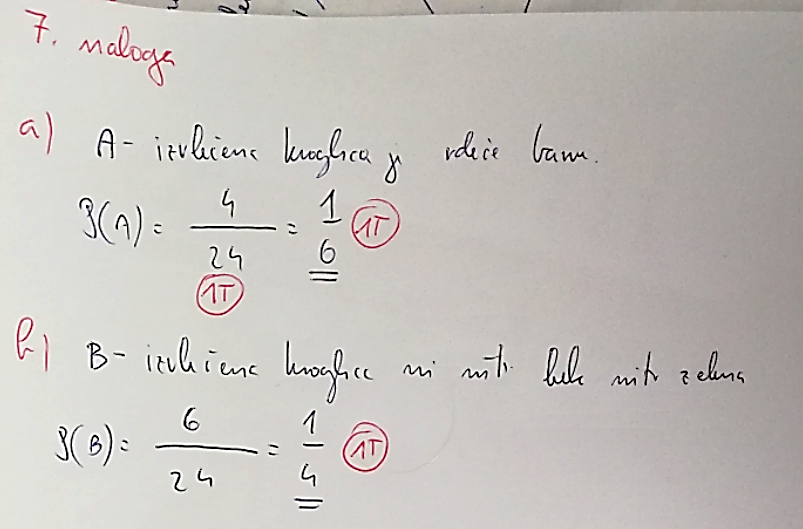 7. naloga
a) A- izvlečena kroglica je rdeče barve.
P(A) = 4/24 = 1/6 1T
1T
b) B- izvlečena kroglica ni niti bela niti zelena
P(B) = 6/24 = 1/4 1T